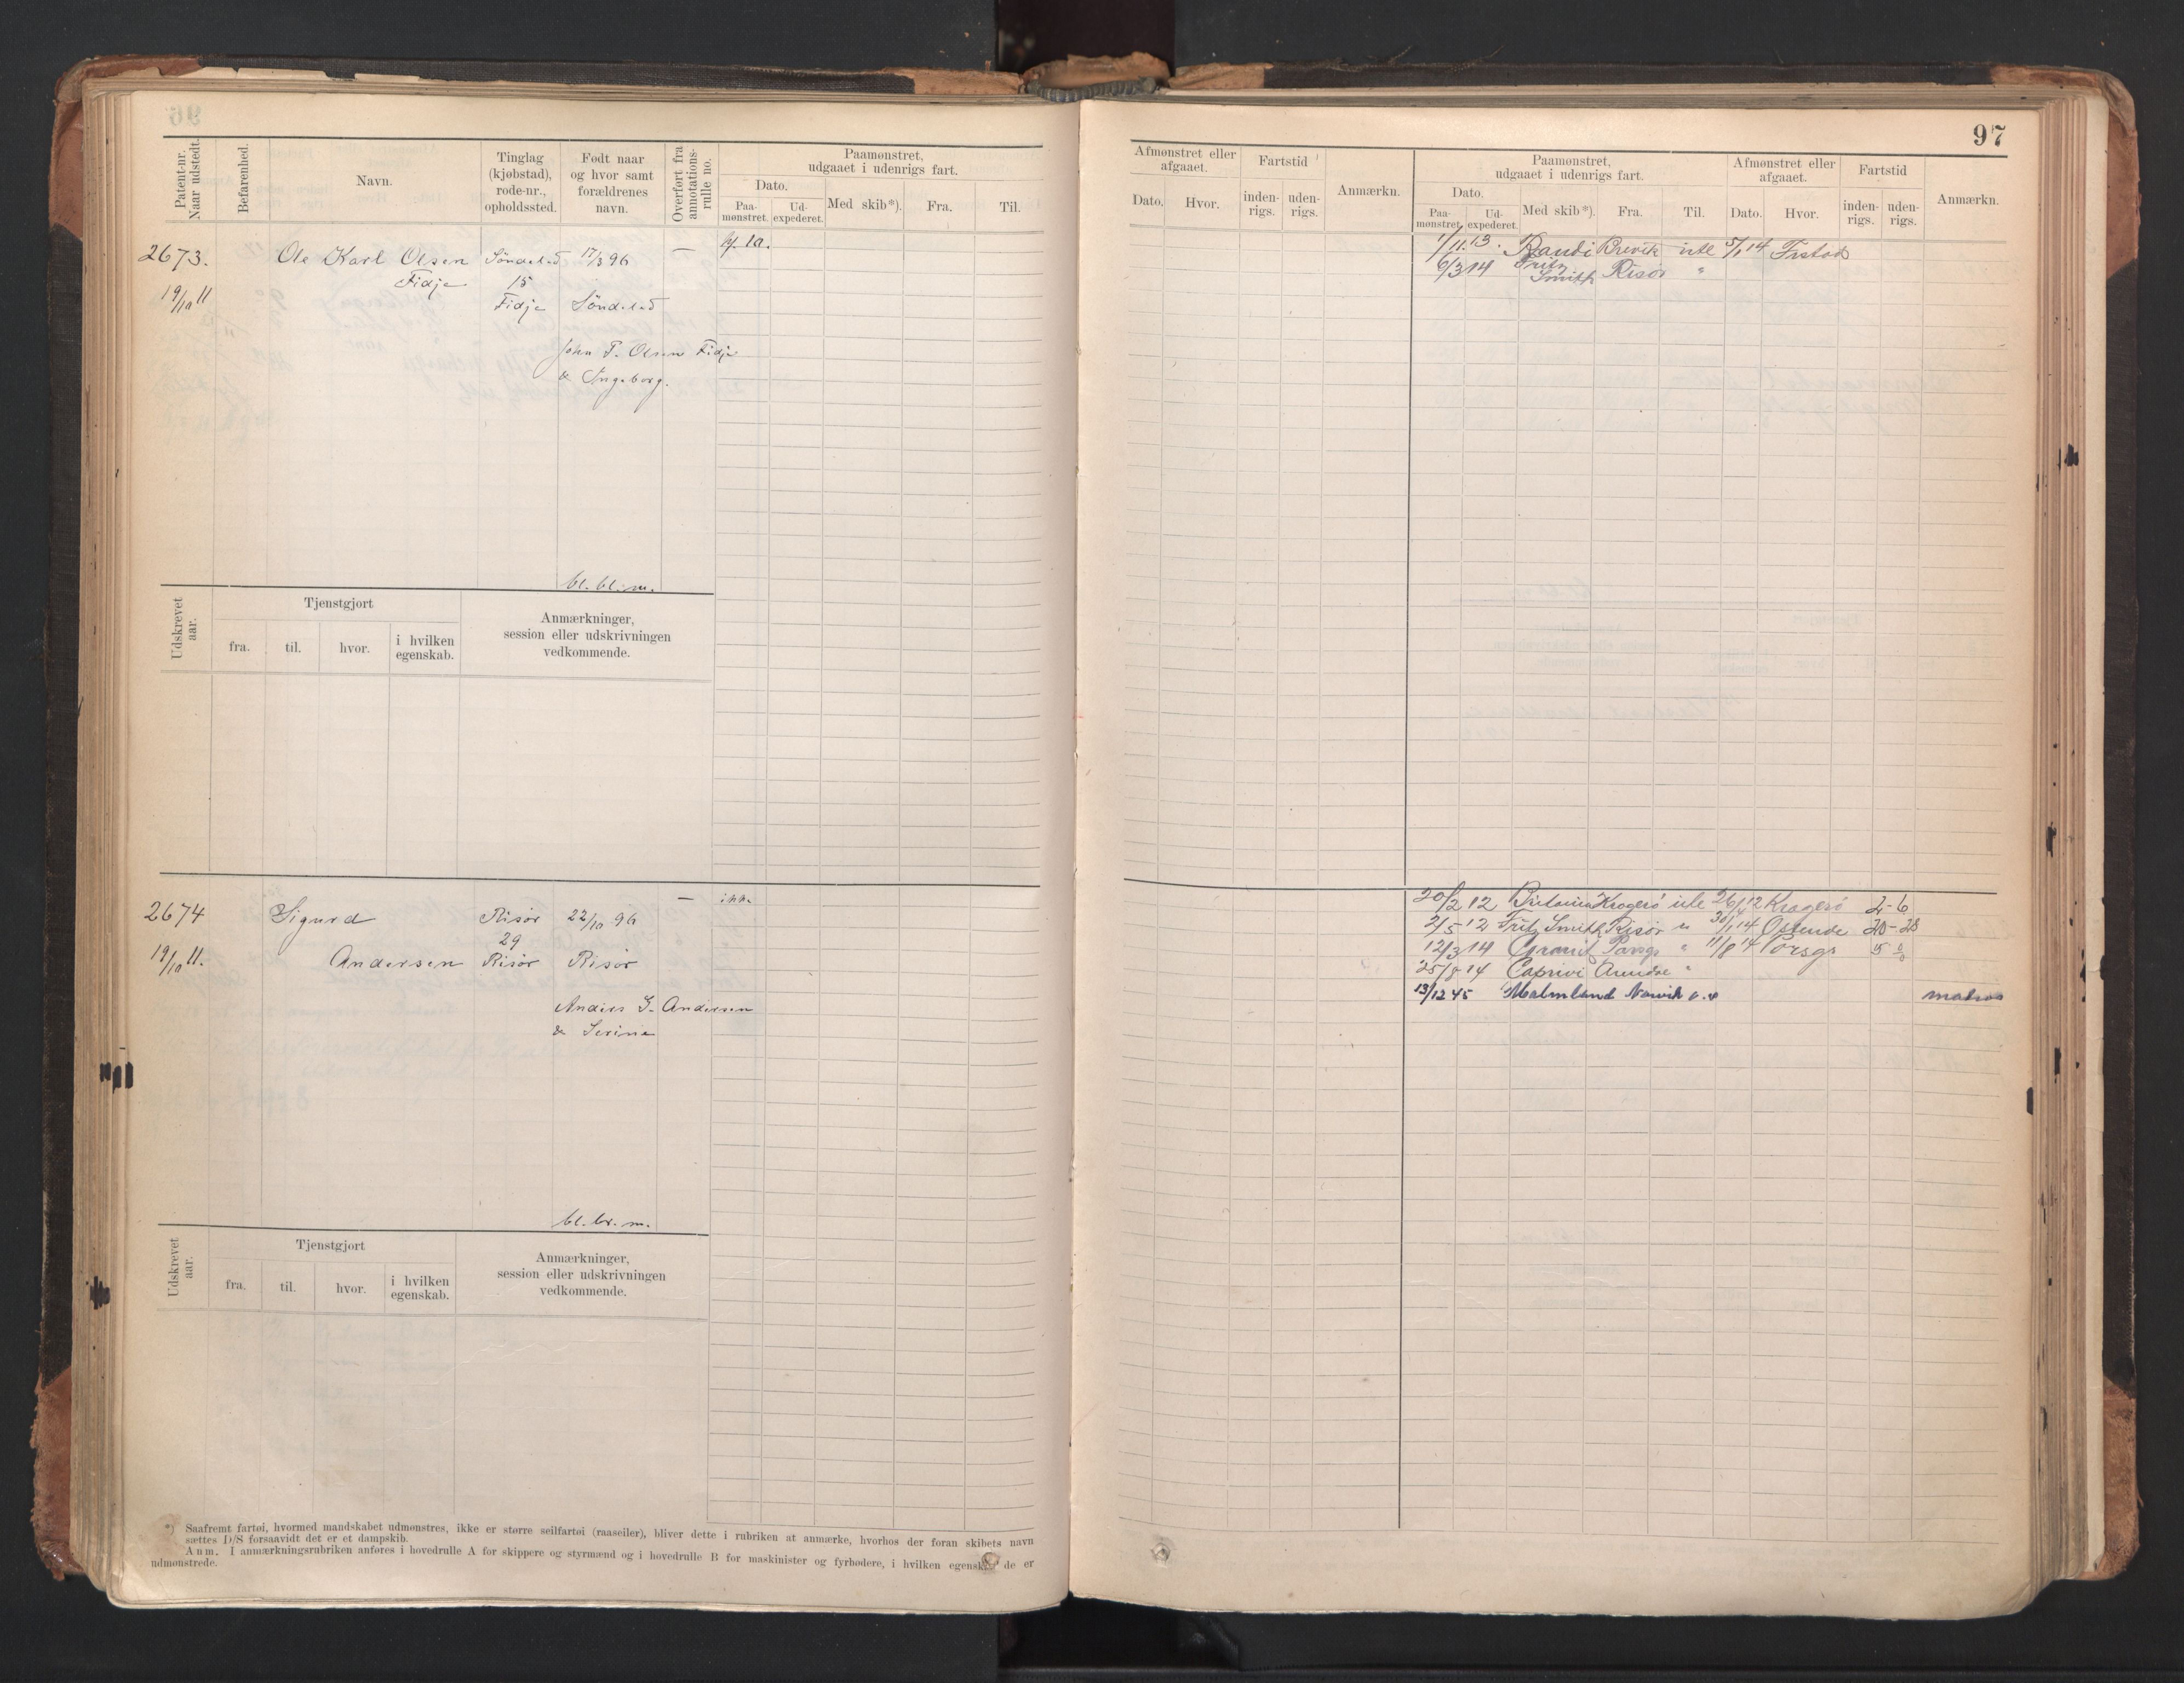 97
Patent-nr. Naar udstedt.
Befarenhed.
Navn.
Tinglag (kjøbstad), rode-nr., opholdssted.
Født naar og hvor samt forældrenes navn.
Overført fra annotations-rulle no.
Paamønstret, udgaaet i udenrigs fart.
Dato.
Paa-mønstret.
Ud-expederet.
Med skib*).
Fra.
Til.
Afmønstret eller afgaaet.
Dato.
Hvor.
Fartstid
inden-rigs.
uden-rigs.
Anmærkn.
Paamønstret, udgaaet i udenrigs fart.
Dato.
Paa-mønstret.
Ud-expederet.
Med skib*).
Fra.
Til.
Afmønstret eller afgaaet.
Dato.
Hvor.
Fartstid
inden-rigs.
uden-rigs.
Anmærkn.
2673. Ole Karl Olsen Søndeled 17/3 96 —
Fidje 15
19/10 11 Fidje Søndeled
John T. Olsen Fidje
& Ingeborg.
bl. bl. m.
1/11 13. Randi Brevik ute 5/1 14
6/3 14 Fritz Smith Risør "
Udskrevet aar.
Tjenstgjort
fra.
til.
hvor.
i hvilken egenskab.
Anmærkninger, session eller udskrivningen vedkommende.
2674 Sigurd Risør 22/10 96 —
29
19/10 11. Andersen Risør Risør
Anders G. Andersen
& Serine
bl. br. m.
20/2 12 Kragerø ute 26/4 12 Kragerø 2-6
2/5 12 Fritz Smith Risør " 30/1 14 Ostende 20-28
12/3 14 Porsgr " 11/8 14 Porsgr
25/8 14 Caprivi Arendal "
13/12 45 Malmland Narvik matros
Udskrevet aar.
Tjenstgjort
fra.
til.
hvor.
i hvilken egenskab.
Anmærkninger, session eller udskrivningen vedkommende.
*) Saafremt fartøi, hvormed mandskabet udmønstres, ikke er større seilfartøi (raaseiler), bliver dette i rubriken at anmærke, hvorhos der foran skibets navn
sættes D/S forsaavidt det er et dampskib.
Anm. I anmærkningsrubriken anføres i hovedrulle A for skippere og styrmænd og i hovedrulle B for maskinister og fyrbødere, i hvilken egenskab de er
udmønstrede.